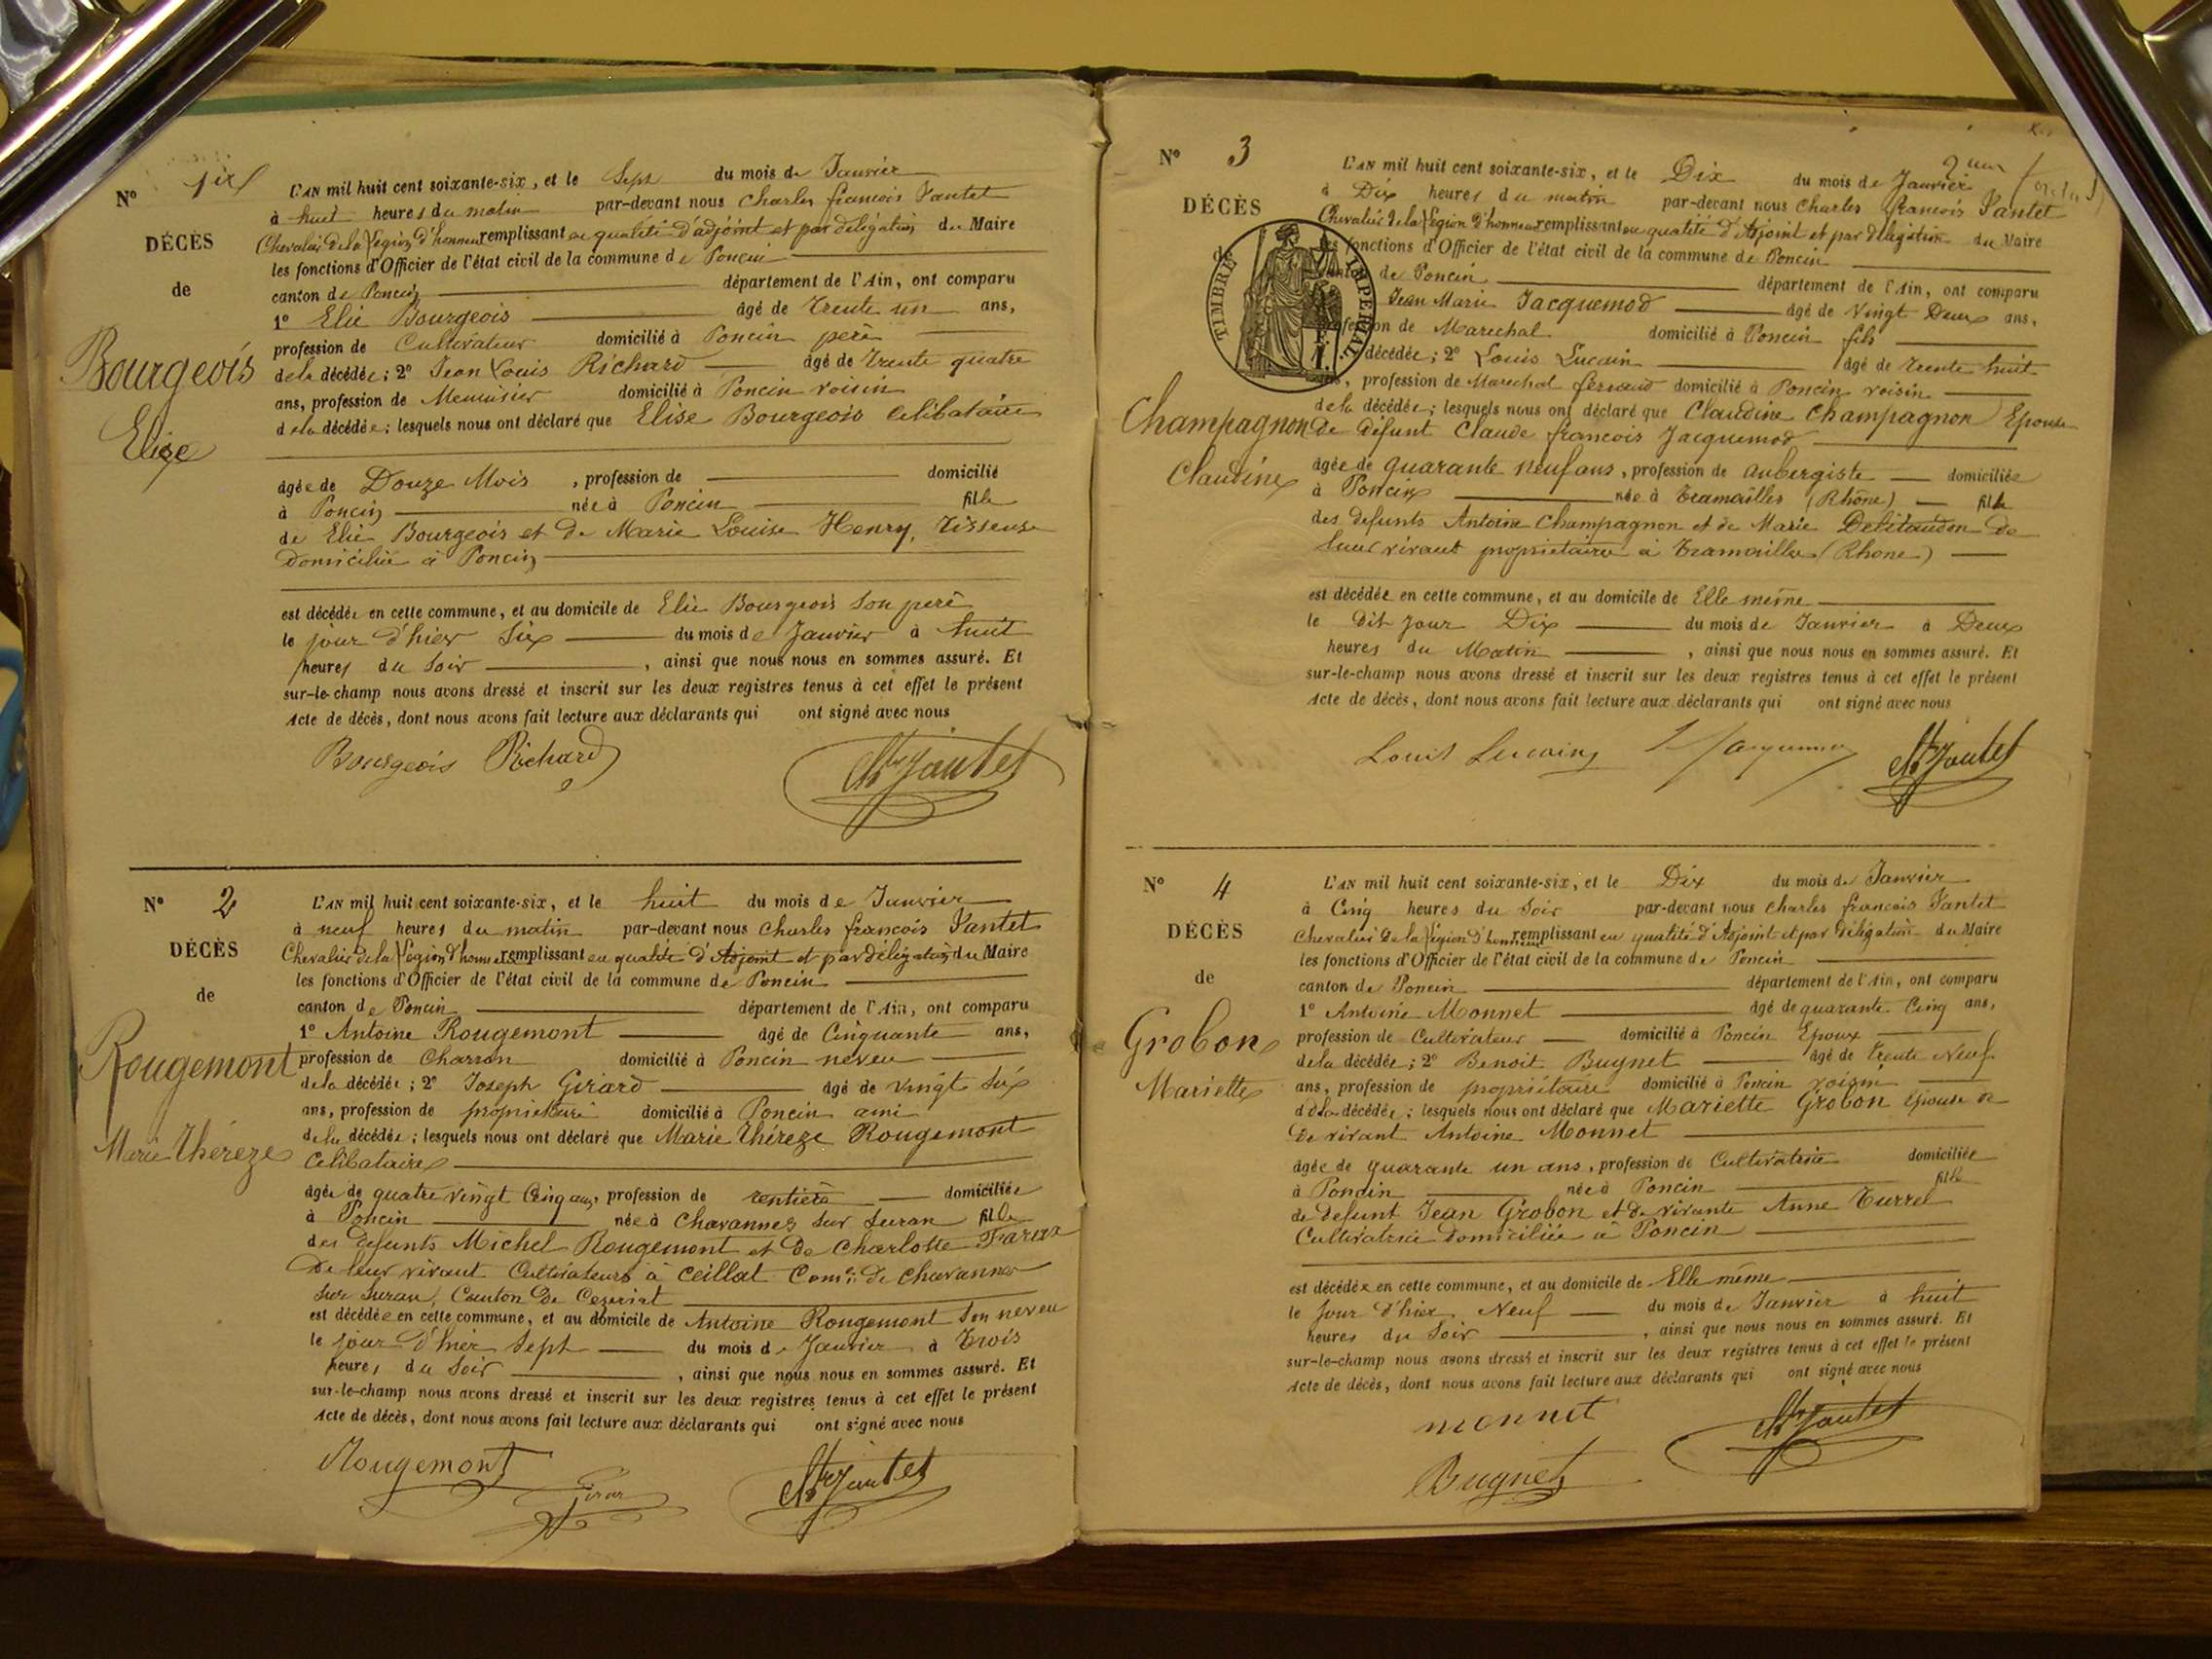 N° 1er
DÉCÈS
de
Bourgeois
Elise
L'AN mil huit cent soixante-six, et le Sept du mois de Janvier
à huit heures du matin par-devant nous Charles françois Jantet
Chevalier de la Légion d'honneur remplissant en qualité d'adjoint et par délégation du Maire
les fonctions d'Officier de l'état civil de la commune de Poncin
canton de Poncin département de l'Ain, ont comparu
1° Elie Bourgeois âgé de trente un ans,
profession de Cultivateur domicilié à Poncin père
de la décédée; 2° Jean Louis Richard âgé de trente quatre
ans, profession de Menuisier domicilié à Poncin voisin
de la décédée; lesquels nous ont déclaré que Elise Bourgeois Célibataire
âgée de Douze Mois, profession de domicilié
à Poncin née à Poncin fille
de Elie Bourgeois et de Marie Louise Henry, Tisseuse
Domiciliée à Poncin
est décédée en cette commune, et au domicile de Elie Bourgeois son père
le jour d'hier Six du mois de Janvier à huit
heures du Soir, ainsi que nous nous en sommes assuré. Et
sur-le-champ nous avons dressé et inscrit sur les deux registres tenus à cet effet le présent
Acte de décès, dont nous avons fait lecture aux déclarants qui ont signé avec nous
Bourgeois Richard Jantet
N° 2
DÉCÈS
de
Rougemont
Marie Théreze
L'AN mil huit cent soixante-six, et le huit du mois de Janvier
à neuf heures du matin par-devant nous Charles françois Jantet
Chevalier de la Légion d'honneur remplissant en qualité d'Adjoint et par délégation du Maire
les fonctions d'Officier de l'état civil de la commune de Poncin
canton de Poncin département de l'Ain, ont comparu
1° Antoine Rougemont âgé de Cinquante ans,
profession de Charron domicilié à Poncin neveu
de la décédée; 2° Joseph Girard âgé de vingt Six
ans, profession de propriétaire domicilié à Poncin ami
de la décédée; lesquels nous ont déclaré que Marie Théreze Rougemont
Célibataire
âgée de quatre vingt Cinq ans, profession de rentière domiciliée
à Poncin née à Chavannes Sur Suran fille
des défunts Michel Rougemont et de Charlotte
De leur vivant Cultivateurs à Ceillat Comne de Chavannes
Sur Suran, Canton De Ceyzeriat
est décédée en cette commune, et au domicile de Antoine Rougemont Son neveu
le jour d'hier Sept du mois de Janvier à Trois
heures du Soir, ainsi que nous nous en sommes assuré. Et
sur-le-champ nous avons dressé et inscrit sur les deux registres tenus à cet effet le présent
Acte de décès, dont nous avons fait lecture aux déclarants qui ont signé avec nous
Rougemont Girard Jantet
N° 3
DÉCÈS
de
TIMBRE IMPERIAL
Champagnon
Claudine
L'AN mil huit cent soixante-six, et le Dix du mois de Janvier
à Dix heures du matin par-devant nous Charles françois Jantet
Chevalier de la Légion d'honneur remplissant en qualité d'Adjoint et par délégation du Maire
les fonctions d'Officier de l'état civil de la commune de Poncin
canton de Poncin département de l'Ain, ont comparu
Jean Marie Jacquemod âgé de Vingt Deux ans,
profession de Marechal domicilié à Poncin fils
décédée; 2° Louis Lucain âgé de trente huit
ans, profession de Marechal ferrand domicilié à Poncin voisin
de la décédée; lesquels nous ont déclaré que Claudine Champagnon Epouse
De défunt Claude françois Jacquemod
âgée de quarante neuf ans, profession de aubergiste domiciliée
à Poncin née à Tramailles (Rhône) fille
des defunts Antoine Champagnon et de Marie de
leur vivant propriétaire à Tramailles (Rhone)
est décédée en cette commune, et au domicile de Elle même
le Dit jour Dix du mois de Janvier à Deux
heures du Matin, ainsi que nous nous en sommes assuré. Et
sur-le-champ nous avons dressé et inscrit sur les deux registres tenus à cet effet le présent
Acte de décès, dont nous avons fait lecture aux déclarants qui ont signé avec nous
Louis Lucain Jacquemod Jantet
N° 4
DÉCÈS
de
Grobon
Mariette
L'AN mil huit cent soixante-six, et le Dix du mois de Janvier
à Cinq heures du Soir par-devant nous Charles françois Jantet
Chevalier de la Légion d'honneur remplissant en qualité d'Adjoint et par délégation du Maire
les fonctions d'Officier de l'état civil de la commune de Poncin
canton de Poncin département de l'Ain, ont comparu
1° Antoine Monnet âgé de quarante Cinq ans,
profession de Cultivateur domicilié à Poncin Epoux
de la décédée; 2° Benoit Bugnet âgé de trente Neuf
ans, profession de propriétaire domicilié à Poncin voisin
de la décédée; lesquels nous ont déclaré que Mariette Grobon épouse
De vivant Antoine Monnet
âgée de quarante un ans, profession de Cultivatrice domiciliée
à Poncin née à Poncin fille
de defunt Jean Grobon et de vivante Anne Turrel
Cultivatrice Domiciliée à Poncin
est décédée en cette commune, et au domicile de Elle même
le jour d'hier Neuf du mois de Janvier à huit
heures du Soir, ainsi que nous nous en sommes assuré. Et
sur-le-champ nous avons dressé et inscrit sur les deux registres tenus à cet effet le présent
Acte de décès, dont nous avons fait lecture aux déclarants qui ont signé avec nous
monnet Jantet
Bugnet